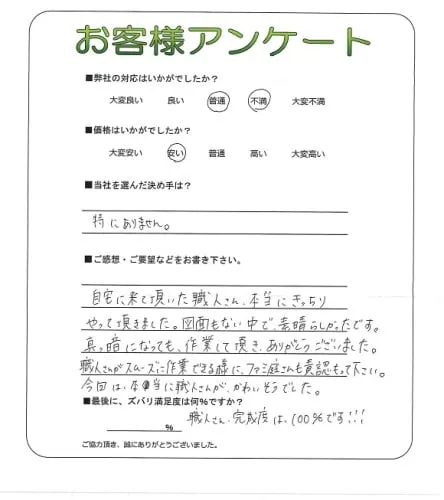 お客様アンケート
■弊社の対応はいかがでしたか？
大変良い 良い 普通 不満 大変不満
■価格はいかがでしたか？
大変安い 安い 普通 高い 大変高い
■当社を選んだ決め手は？
特にありません。
■ご感想・ご要望などをお書き下さい。
自宅に来て頂いた職人さん、本当にきっちり
やって頂きました。図面もない中で、素晴らしかったです。
真っ暗になっても、作業して頂き、ありがとうございました。
職人さんがスムーズに作業できる様に、ファミ庭さんも責認もって下さい。
今回は、本当に職人さんが、かわいそうでした。
■最後に、ズバリ満足度は何%ですか？
% 職人さん、完成度は、100%です!!!
ご協力頂き、誠にありがとうございました。